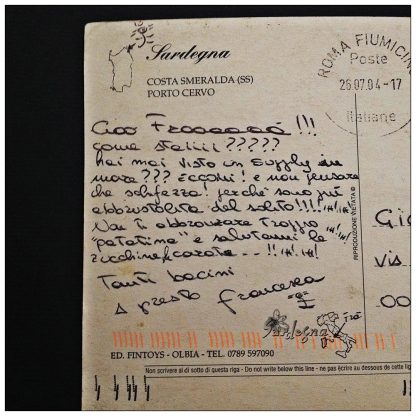 Sardegna
COSTA SMERALDA (SS)
PORTO CERVO
ROMA FIUMICIN
Poste
26.07.04-17
Italiane
Ciao Frooooooó!!!
come staiiii?????
hai mai visto un supplì in
mare??? Eccomi! e non pensare
che schifezza! perché sono più
abbrustolita del solito!!!!
Non ti abbronzare troppo
"patatina" e salutami le
zucchine &
Tanti bacini
A presto Francesca
RIPRODUZIONE VIETATA ©
Gio
Vis
00
Sardegna
ED. FINTOYS - OLBIA - TEL. 0789 597090
Non scrivere al di sotto di questa riga - Do not write below this line - ne pas écrire au dessous de cette lig